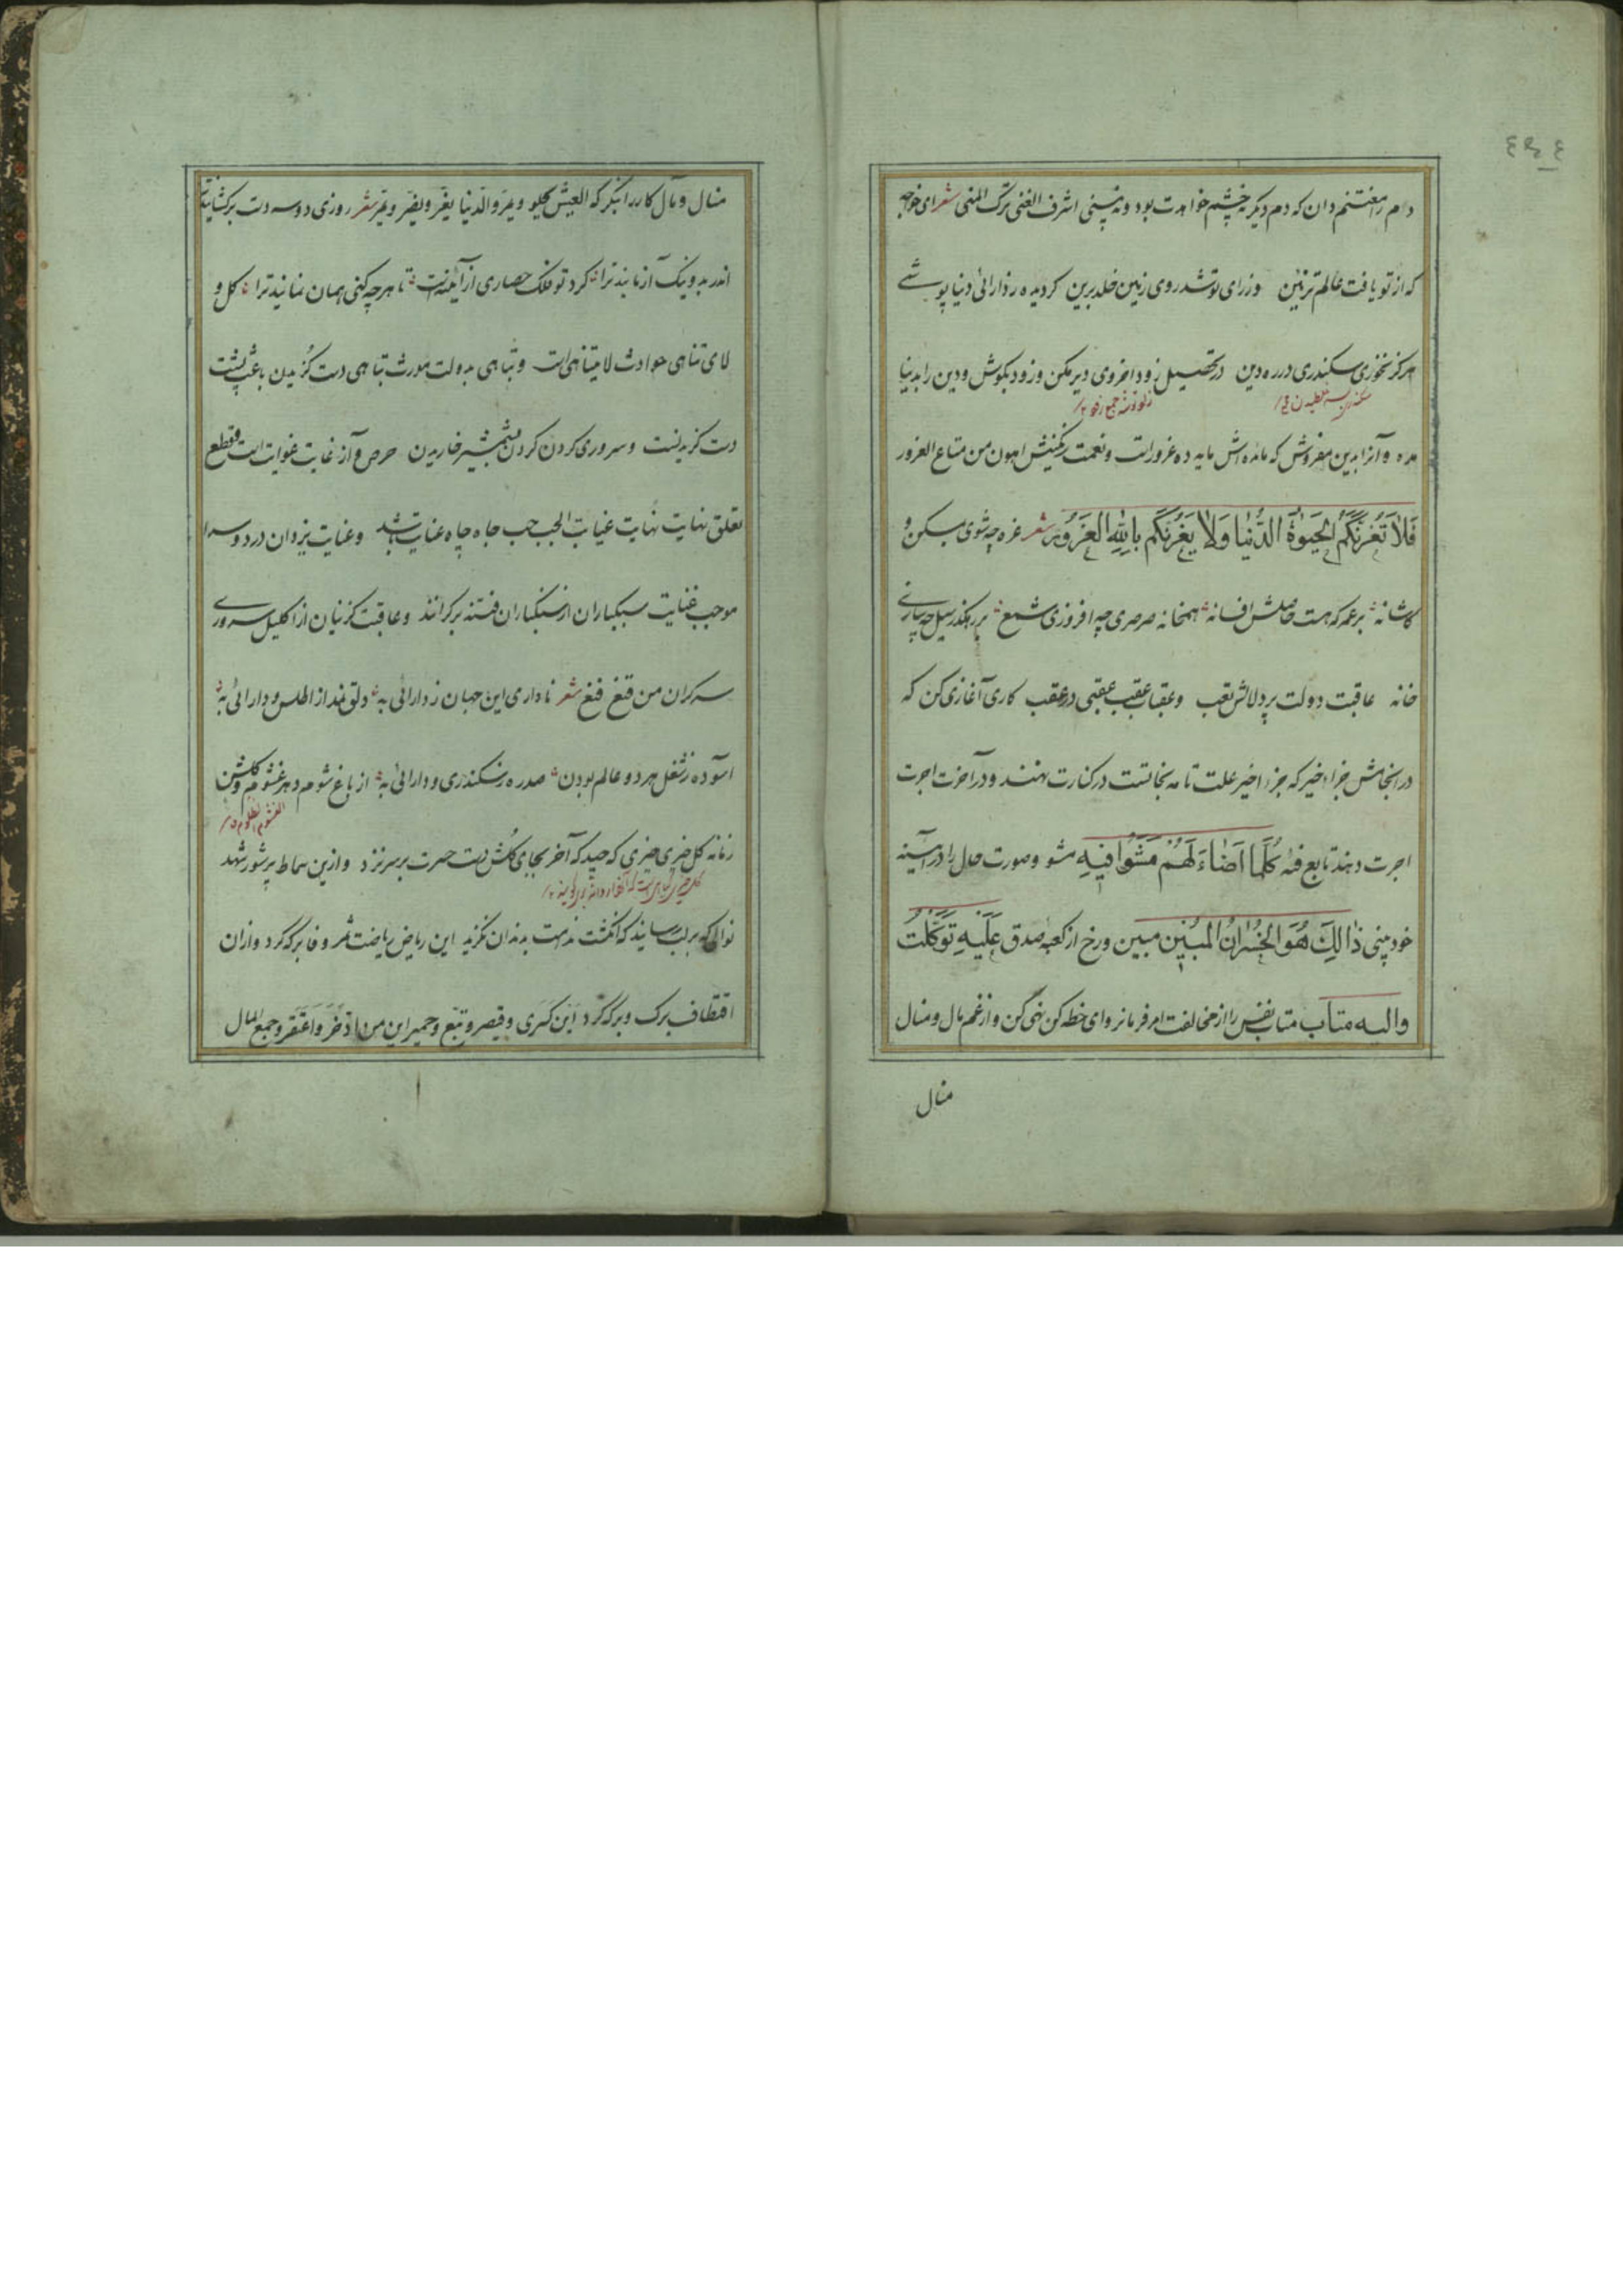 دم را مغتنم دان که دم دیگر نه چشم خواهدت بود و نه بینی اشرف الغنی ترک المنی شعر ای خواجه
که از تو یافت عالم تزئین وز رای تو شد روی زمین خلد برین گردیده ز دارائی دنیا پوشی
هرگز نخوری سکندری در ره دین در تحصیل زود اخروی دیر مکن و زود بکوش و دین را بدنیا
مده و آنرا بدین مفروش که مائده اش مایه ده غرورات و نعمت اهون من متاع الغرور
فَلاَ تَغُرَّنَّكُمُ الحَيَوةُ الدُّنْيَا وَلاَ يَغُرَّنَّكُم بِاللهِ الغَرُورُ شعر غره چه شوی بمسکن و
کاشانه بر عمر که هست حاصلش افسانه همخانه صرصری چه افروزی شمع بر رهگذر سیل چه سازی
خانه عاقبت دولت پر دلالش تعب و عقاب عقیب عقبی در عقب کاری آغازی کن که
در انجامش جزاء خیر که جزء اخیر علت تامه نجاتست در کنارت نهند و در آخرت اجرت
اجرت دهند تابع فئه كُلَّمَا اَضَاءَ لَهُمْ مَشَوْا فِيهِ مشو و صورت حال را در آینه
خود بینی ذٰالِكَ هُوَ الخُسْرَانُ المُبِينُ مبین و رخ از کعبه صدق عَلَيْهِ تَوَكَّلْتُ
والیه متاب متاب نفس را از مخالفت امر فرمانروای خطه کن نهی کن و از غم مال و منال
منال
منال و مآل کار را بنگر که العیش یحلو و یمر و الدنیا یغر و یضر و یمر شعر روزی دو سه دست برگشایند
اندر بد و نیک آزمایند ترا گرد تو فلک حصاری از آینه است تا هر چه کنی همان نمایند ترا گل و
لای تناهی حوادث لا یتناهی است و تباهی بدولت مورث تباهی دست گزیدن باعث پشت
دست گزیدنست و سروری کردن گردن بشمشیر خاریدن حرص و آز غایت غوایت است و قطع
تعلق نهایت نهایت غیابت الجب حب جاه چاه عنایت باشد و عنایت یزدان در دو سرا
موجب غنایت سبکباران از سنگباران فتنه بر کرانند و عاقبت گزینان از اکلیل سروری
سرگران من قنع فنع شعر ناداری این جهان ز دارائی به دلق نمد از اطلس و دارائی به
آسوده ز شغل هر دو عالم بودن صد ره ز سکندری و دارائی به از باغ شوم دهر غشوم و گلشن
زمانه گل خیری خیری که چید که آخر بجای گلش دست حسرت بر سر نزد و ازین سماط پر شور شهد
نوالی که بر لب رسانید که انگشت ندامت بدندان نگزید این ریاض ریاضت ثمر وفا بر که کرد و از آن
اقتطاف برگ و بر که کرد این کسری و قیصر و تبع و حمیر این من ادّخر و اعتقر و جمع المال